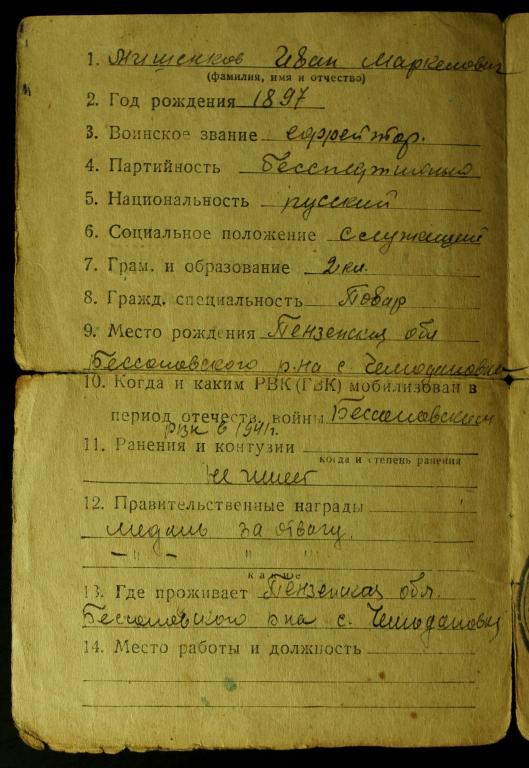 1. Мишенков Иван Маркелович
(фамилия, имя и отчество)
2. Год рождения 1897
3. Воинское звание ефрейтор.
4. Партийность беспартийный
5. Национальность русский
6. Социальное положение служащий
7. Грам. и образование 2 кл.
8. Гражд. специальность Повар
9. Место рождения Пензенская обл
Бессоновского р-на с. Чемодановка
10. Когда и каким РВК (ГВК) мобилизован в
период отечеств. войны Бессоновским
РВК в 1941г.
11. Ранения и контузии
когда и степень ранения
не имеет
12. Правительственные награды
медаль за отвагу.
— " — " "
какие
13. Где проживает Пензенская обл.
Бессоновского р-на с. Чемодановка
14. Место работы и должность